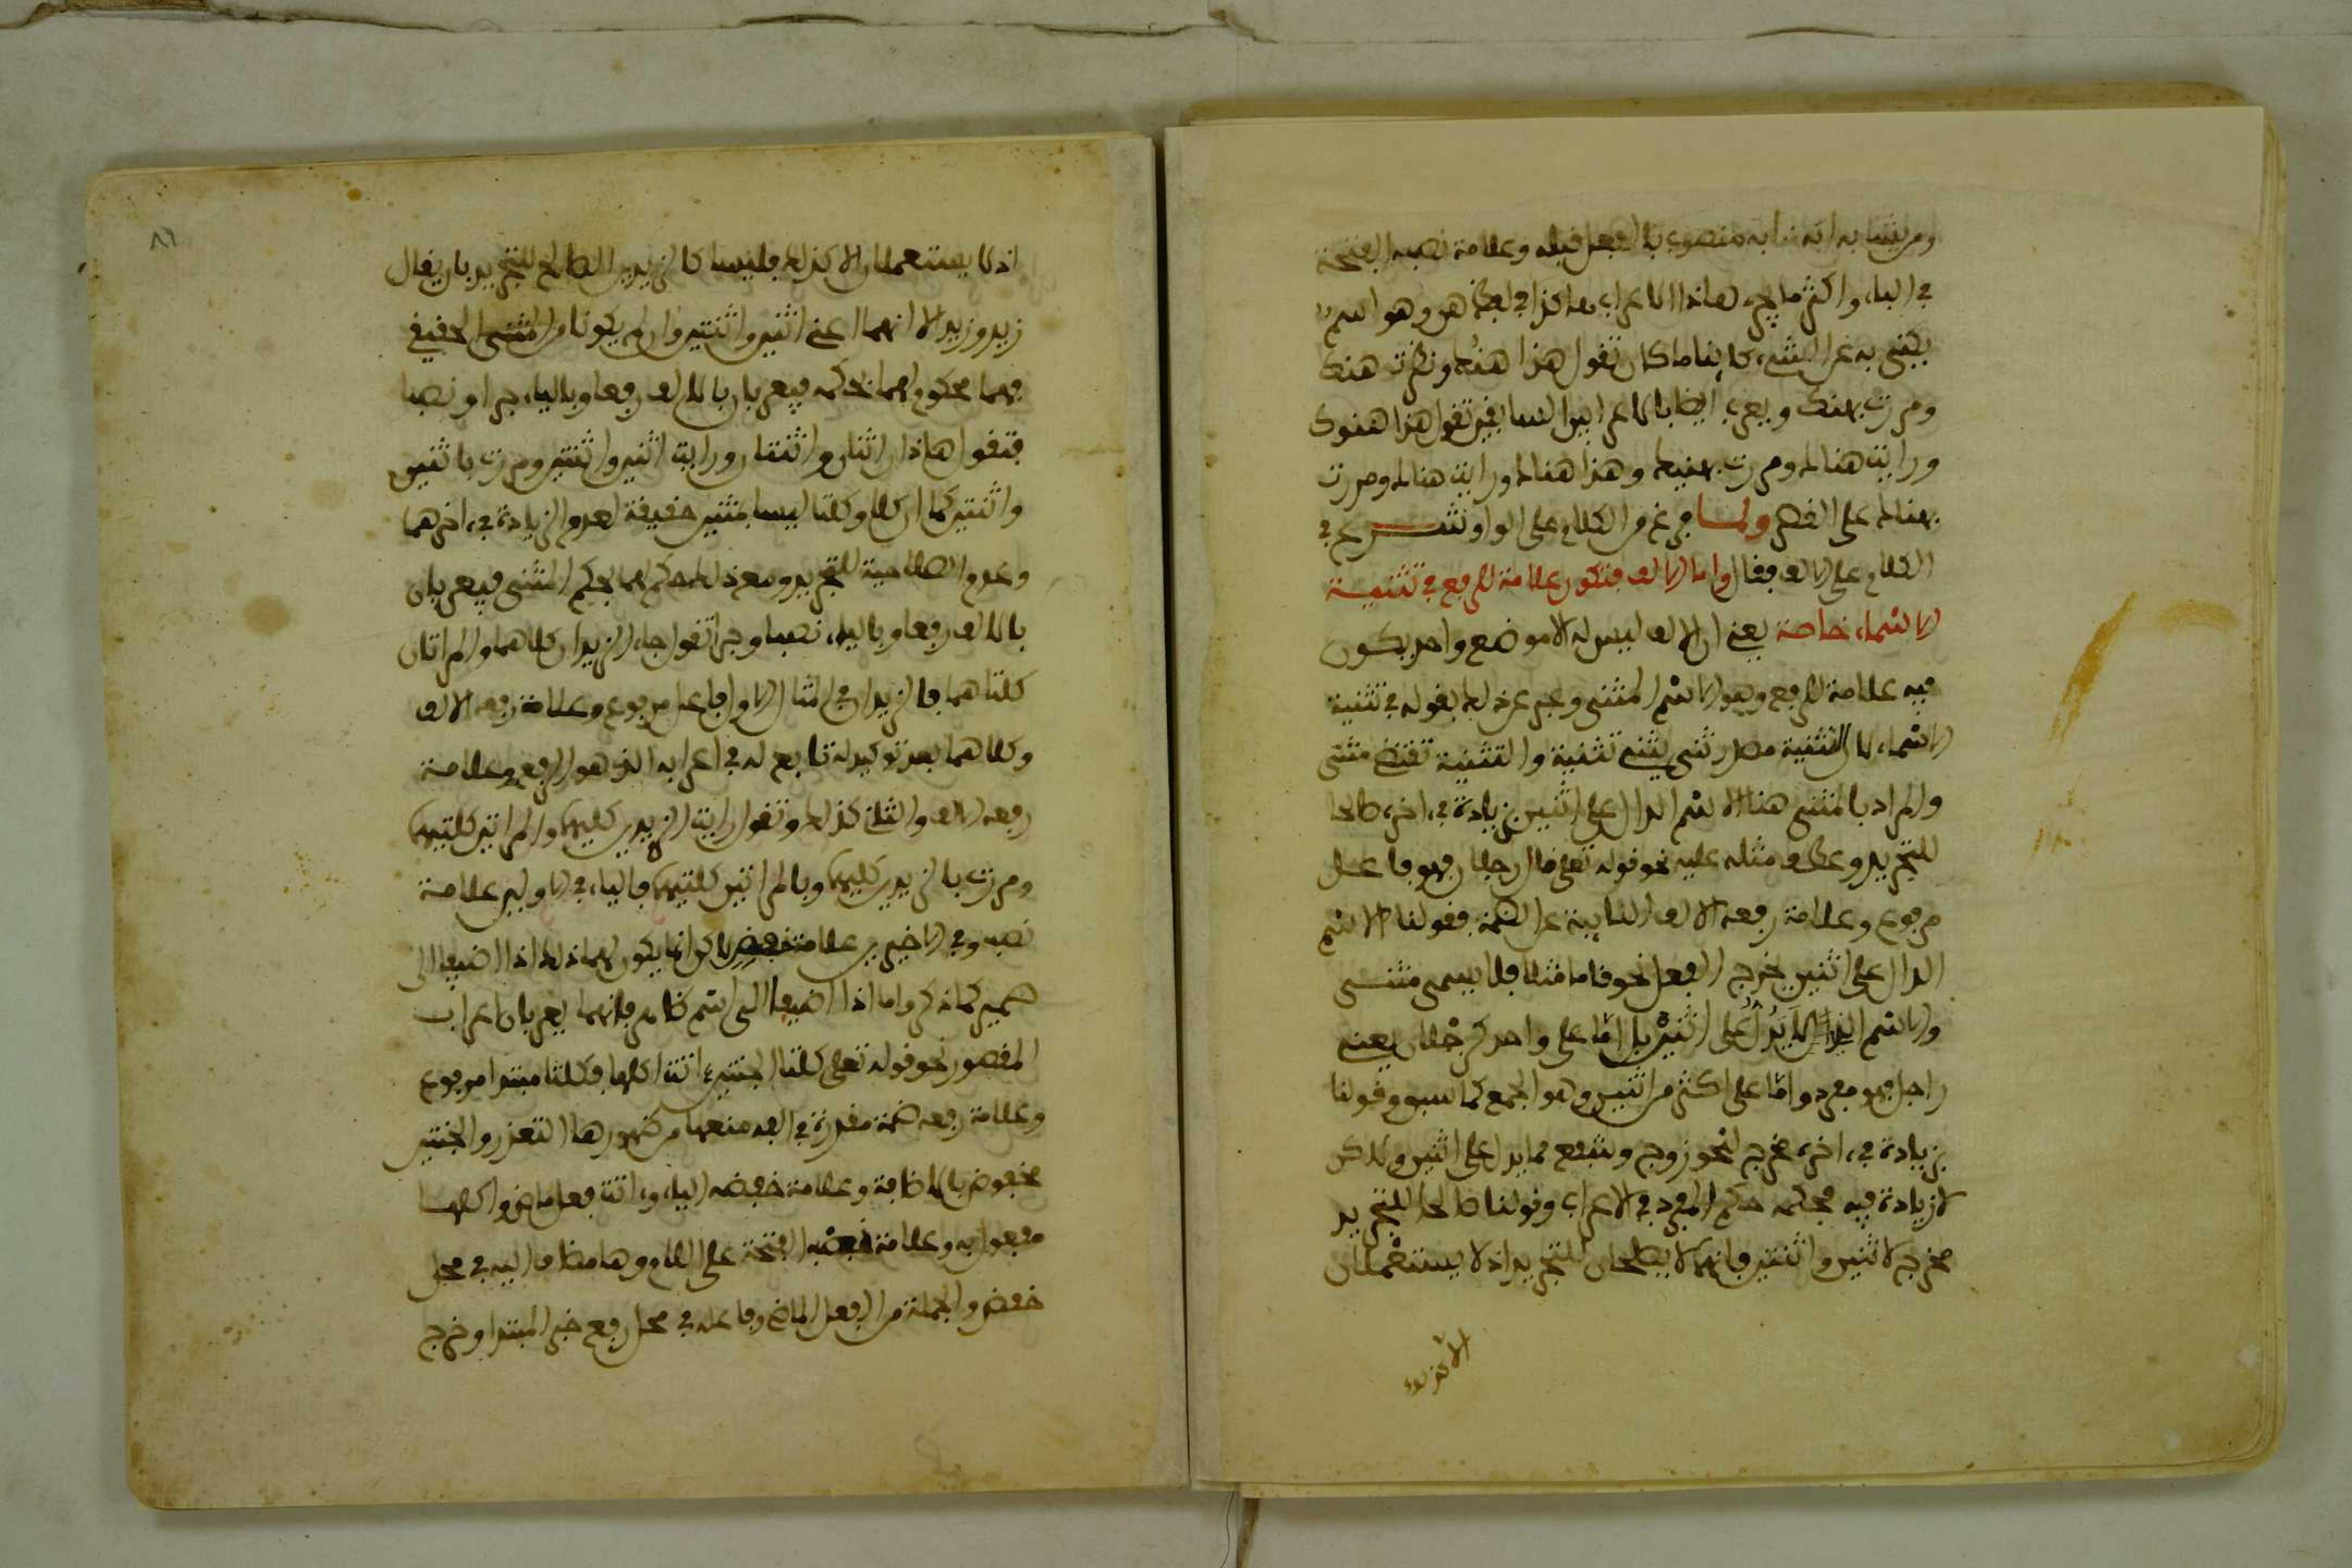 ومن يشابه ابه فابه منصوب بالفعل قبله وعلامة نصبه الفتحة
في الباء واكثر ما يجيء هاذا الاعراب هكذا في لفظ هن وهو اسم
يكنى به عن الشيء كاينا ما كان تقول هذا هنك ونظرت هنك
ومررت بهنك ويعرب ايضا بالاعرابين السابقين تقول هذا هنوك
ورايت هناك ومررت بهنيك وهذا هناك ورايت هناك ومررت
بهناك على القصر ولما فرغ من الكلام على الواو شرع في
الكلام على الالف فقال واما الالف فتكون علامة للرفع في تثنية
الاسماء خاصة يعني ان الالف ليس له الا موضع واحد يكون
فيه علامة للرفع وهو الاسم المثنى وعبر عن ذلك بقوله في تثنية
الاسماء لان التثنية مصدر ثنى يثني تثنية والتثنية تقتضي مثنى
والمراد بالمثنى هنا الاسم الدال على اثنين بزيادة في ءاخره صالحا
للتجريد وعطف مثله عليه نحو قوله تعلى قال رجلان فهو فاعل
مرفوع وعلامة رفعه الالف النايبة عن الضمة فقولنا الاسم
الدال على اثنين يخرج الفعل نحو قاما مثلا فلا يسمى مثنى
والاسم الذي لا يدل على اثنين بل امّا على واحد كرجلان يعني
راجل فهو مفرد وامّا على اكثر من اثنين وهو الجمع كما سبق وقولنا
بزيادة في ءاخره يخرج نحو زوج وشفع مما يدل على اثنين ولاكن
لا زيادة فيه فحكمه حكم المفرد في الاعراب وقولنا صالحا للتجريد
يخرج لاثنين واثنتين فانهما لا يصلحان للتجريد اذ لا يستعملان
الا كذلك
٨٦
اذ لا يستعملان الا كذلك فليسا كالزيدين الصالح للتجريد بان يقال
زيد وزيد الا انهما اعني اثنين واثنتين وان لم يكونا من المثنى الحقيقي
فهما محكوم لهما بحكمه فيعربان بالالف رفعا وبالياء جرا ونصبا
فتقول هاذان اثنان واثنتان ورايت اثنين واثنتين ومررت باثنين
واثنتين كما ان كلا وكلتا ليسا مثنيين حقيقة لعدم الزيادة في ءاخرهما
وعدم الصلاحية للتجريد ومع ذلك حكم لهما بحكم المثنى فيعربان
بالالف رفعا وبالياء نصبا وجرا تقول جاء الزيدان كلاهما والمراتان
كلتاهما فالزيدان في المثال الاول فاعل مرفوع وعلامة رفعه الالف
وكلاهما بعد توكيد له تابع له في اعرابه الذي هو الرفع وعلامة
رفعه الالف والثاني كذلك وتقول رايت الزيدين كليهما والمراتين كلتيهما
ومررت بالزيدين كليهما وبالمراتين كلتيهما فالياء في الاولين علامة
نصب وفي الاخيرين علامة خفض لاكن انما يكون لهما ذلك اذا اضيفا الى
ضمير كما ذكر واما اذا اضيفا الى اسم ظاهر فانهما يعربان اعراب
المقصور نحو قوله تعلى كلتا الجنتين ءاتت اكلها فكلتا مبتدا مرفوع
وعلامة رفعه ضمة مقدرة في الفه منعها من ظهورها التعذر والجنتين
مخفوض بالاضافة وعلامة خفضه الياء وءاتت فعل ماض واكلها
مفعول به وعلامة نصبه الفتحة على اللام وها مضاف اليه في محل
خفض والجملة من الفعل الماضي وفاعله في محل رفع خبر المبتدا وخرج